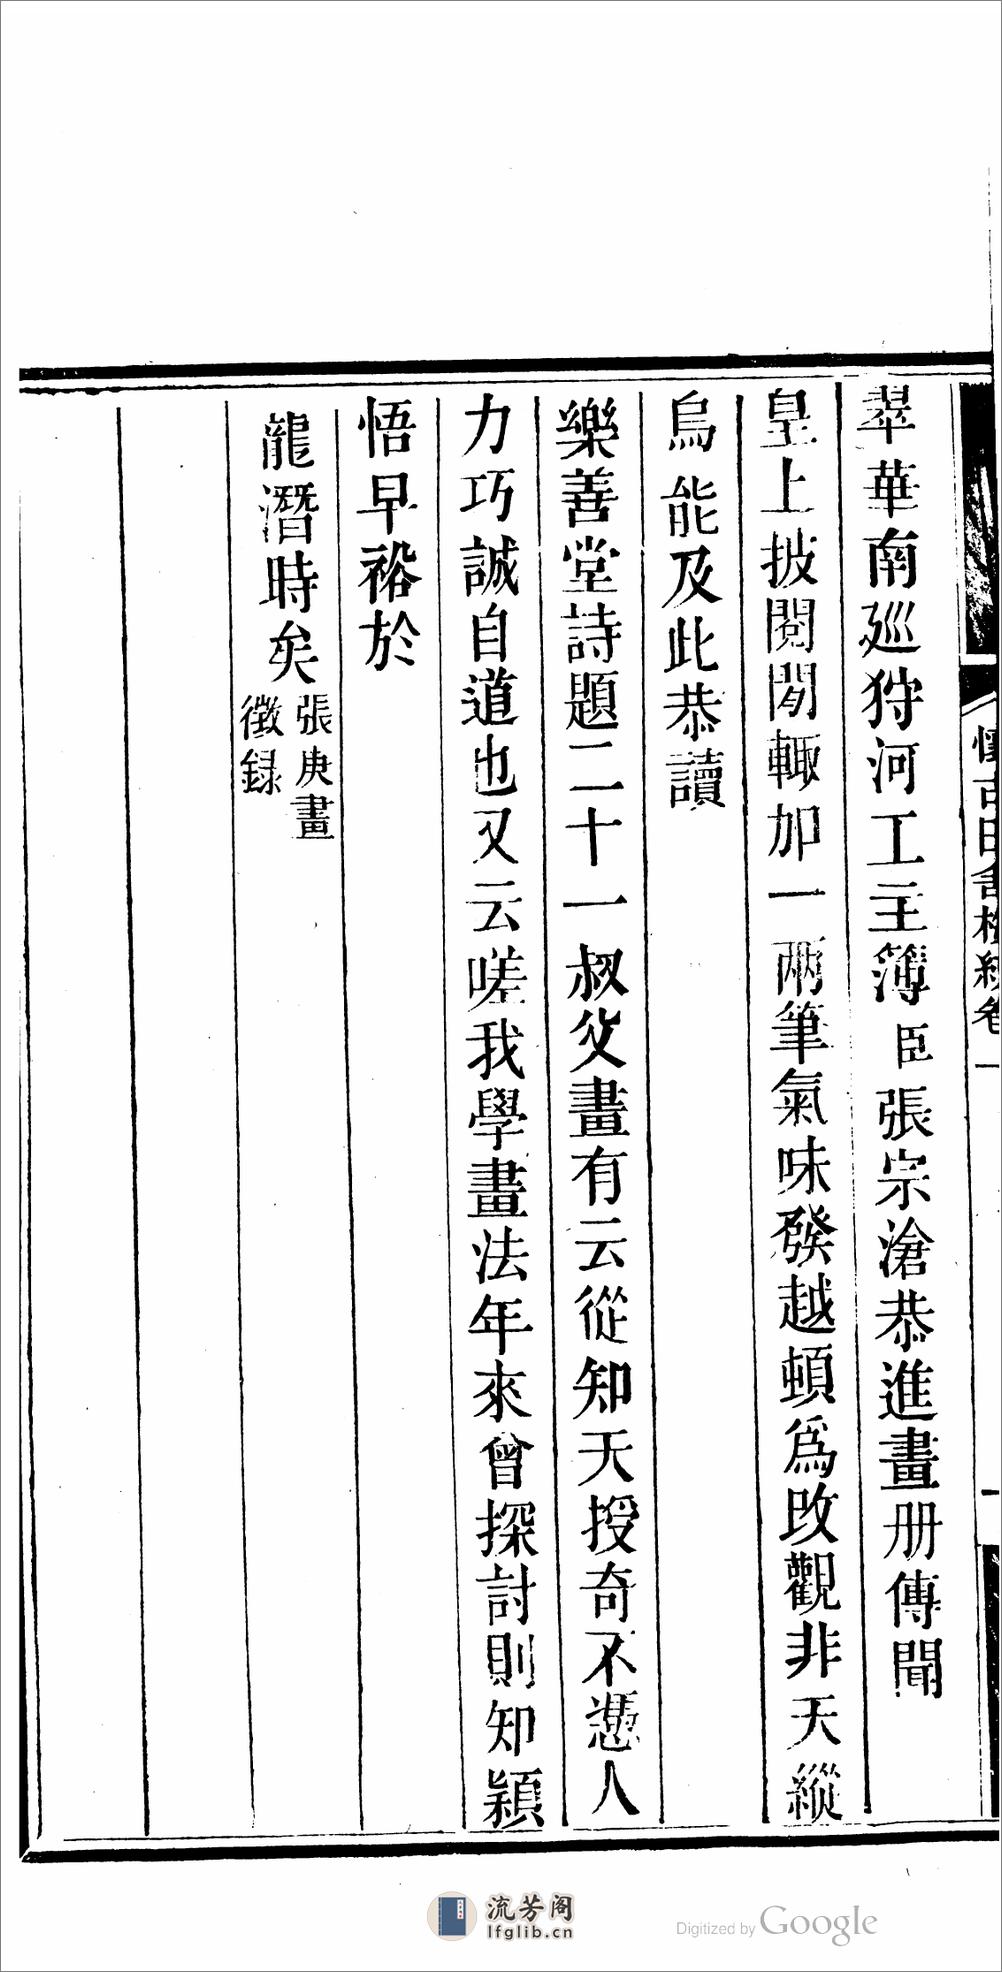 翠華南廵狩河工主簿臣張宗滄恭進畫册傳聞
皇上披閱間輙加一兩筆氣味發越頓爲改觀非天縱
烏能及此恭讀
樂善堂詩題二十一叔父畫有云從知天授奇不憑人
力巧誠自道也又云嗟我學畫法年來曾探討則知穎
悟早裕於
龍潛時矣張庚畫
徵録
懷古田舍梅統卷一
流芳阁
lfglib.cn
Digitized by Google